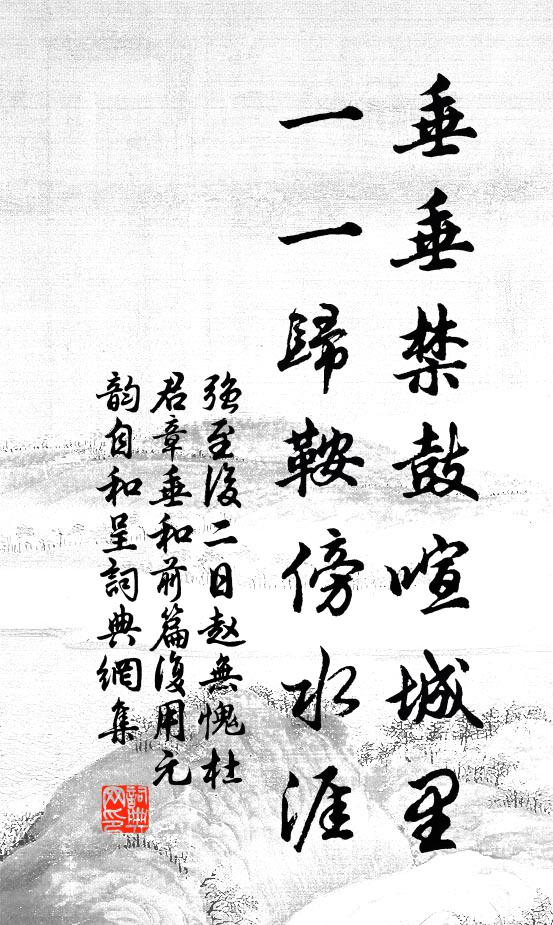 垂垂禁鼓喧城里
一一歸鞍傍水涯
强至後二日趙無愧杜
君章垂和前篇復用元
韵自和呈詞典網集
詞典
网印